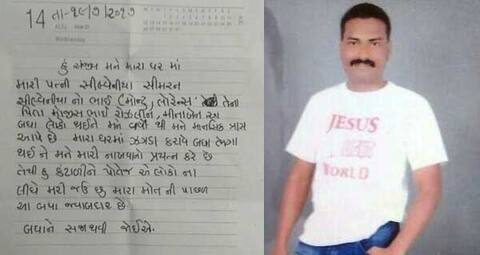 14 તા-૧૯/૭/૨૦૧૭
Wednesday
હું સંજીસ મને મારા ઘર માં
મારી પત્ની સીલ્વેનીયા સીમરન
સીલ્વેનીયા નો ભાઈ (મોન્ટુ, લોરેન્સ તેના
પિતા ભાઈ રોઝલીન, મીનાબેન
બધા લોકો થઈને મને વર્ષો થી મને માનસિક ત્રાસ
આપે છે. મારા ઘરમાં ઝગડા કરાવે બધા ભેગા
થઈ ને મને મારી નાખવાનો પ્રયત્ન કરે છે
તેથી હું કંટાળીને એ લોકો ના
લીધે મરી જઉં છુ મારા મોત ની પાછળ
આ બધા જવાબદાર છે.
બધાને સજા થવી જોઈએ.
JESUS
WORLD